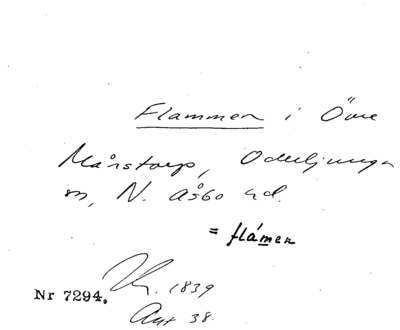 Flammen i Övre
Månstorp, Oderljunga
sn, N. Åsbo hd.
= flámen
Nr 7294.
1839
38.